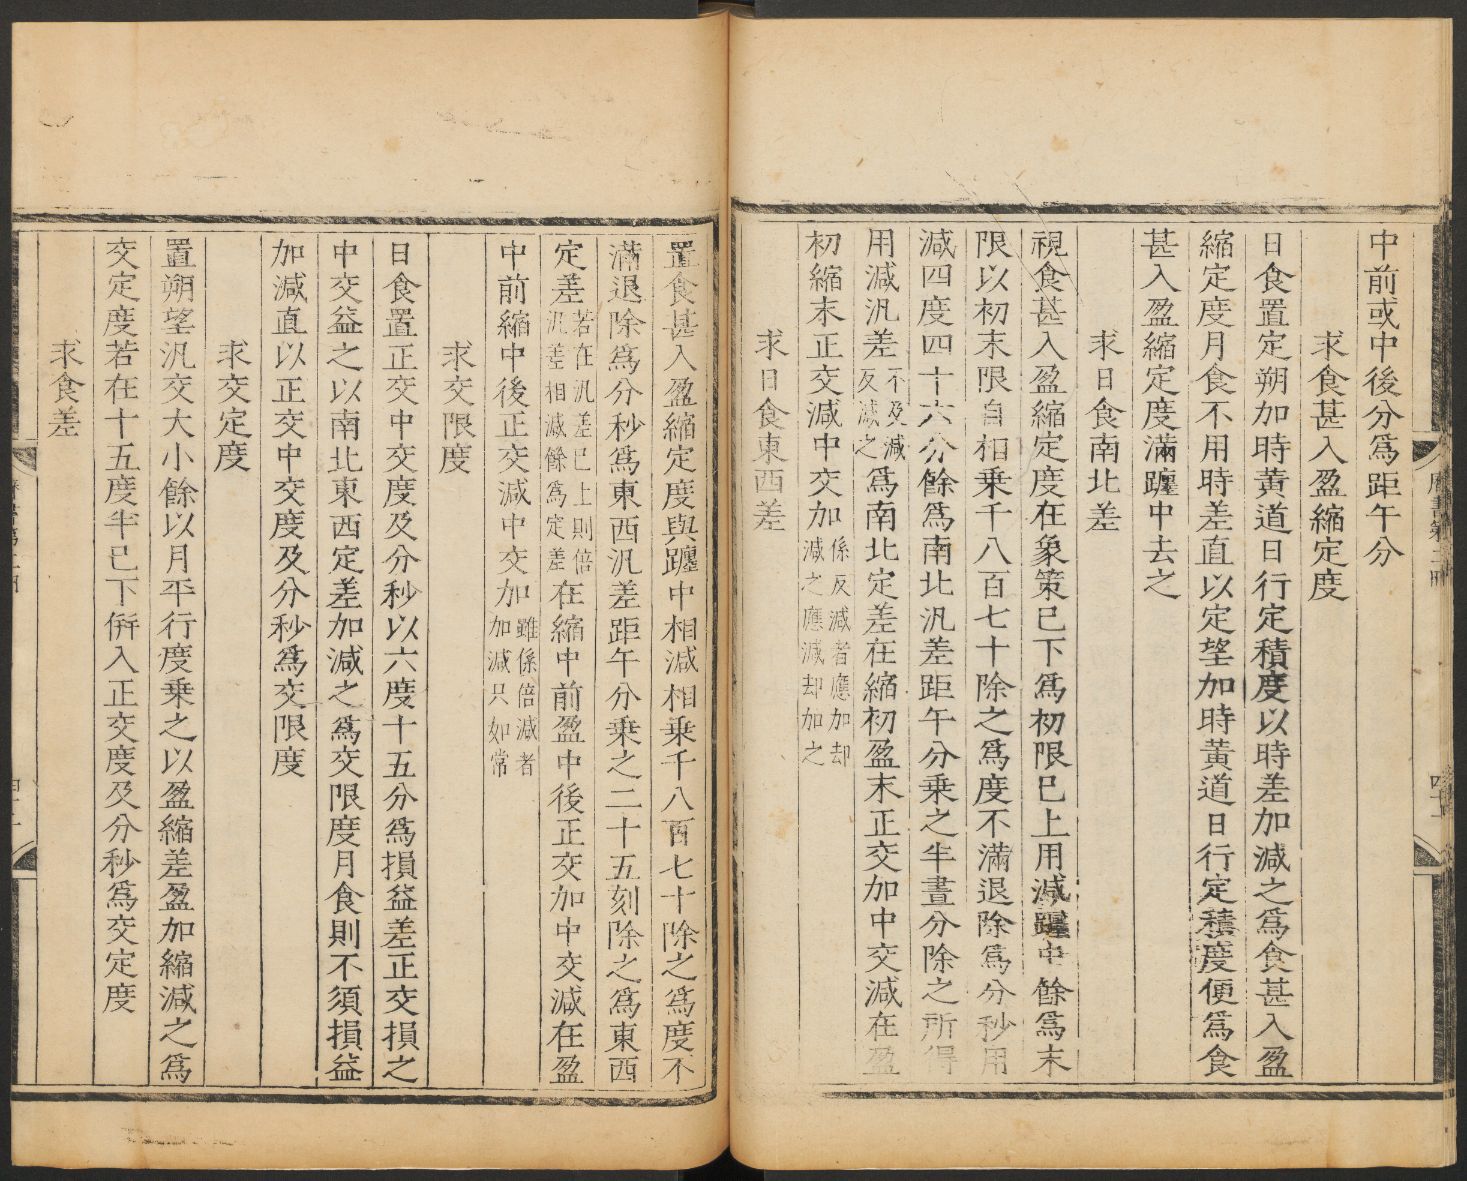 中前或中後分爲距午分
求食甚入盈縮定度
日食置定朔加時黃道日行定積度以時差加減之爲食甚入盈
縮定度月食不用時差直以定望加時黃道日行定積度便爲食
甚入盈縮定度滿躔中去之
求日食南北差
視食甚入盈縮定度在象策已下爲初限已上用減躔中餘爲末
限以初末限自相乗千八百七十除之爲度不滿退除爲分秒用
減四度四十六分餘爲南北汎差距午分乗之半晝分除之所得
用減汎差不及減反減之爲南北定差在縮初盈末正交加中交減在盈
初縮末正交減中交加係反減者應加却減之應減却加之
求日食東西差
置食甚入盈縮定度與躔中相減相乗千八百七十除之爲度不
滿退除爲分秒爲東西汎差距午分乗之二十五刻除之爲東西
定差若在汎差已上則倍汎差相減餘爲定差在縮中前盈中後正交加中交減在盈
中前縮中後正交減中交加雖係倍減者加減只如常
求交限度
日食置正交中交度及分秒以六度十五分爲損益差正交損之
中交益之以南北東西定差加減之爲交限度月食則不須損益
加減直以正交中交度及分秒爲交限度
求交定度
置朔望汎交大小餘以月平行度乗之以盈縮差盈加縮減之爲
交定度若在十五度半已下倂入正交度及分秒爲交定度
求食差